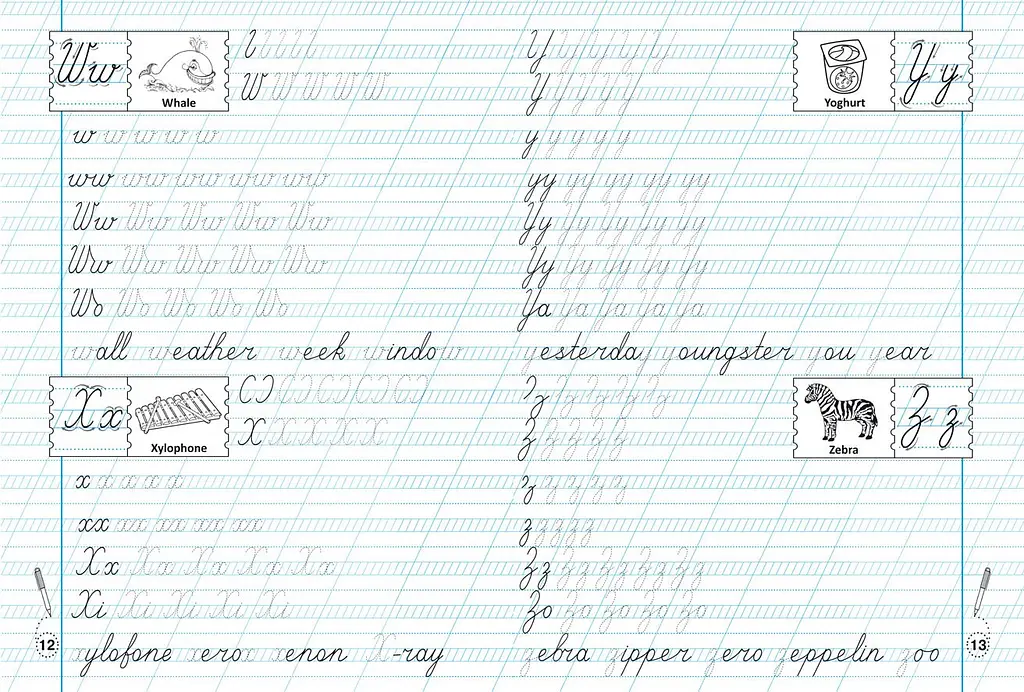 Ww
Whale
W W W W W
w w w w w
ww ww ww ww ww
Ww Ww Ww Ww Ww
Ww Ww Ww Ww Ww
Wo Wo Wo Wo Wo
wall weather week window
Xx
Xylophone
X X X X X
x x x x x
xx xx xx xx xx
Xx Xx Xx Xx Xx
Xi Xi Xi Xi Xi
xylofone xerox xenon X-ray
12
Yy
Yoghurt
Y Y Y Y Y
y y y y y
yy yy yy yy yy
Yy Yy Yy Yy Yy
Yy Yy Yy Yy Yy
Ya Ya Ya Ya Ya
yesterday youngster you year
Zz
Zebra
Z Z Z Z Z
z z z z z
z z z z z
Zz Zz Zz Zz Zz
Zo Zo Zo Zo Zo
zebra zipper zero zeppelin zoo
13